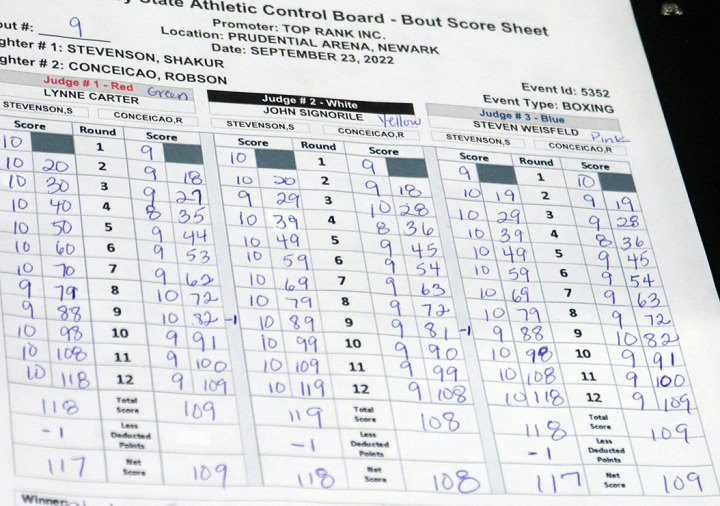 y State Athletic Control Board - Bout Score Sheet
out #: 9
Promoter: TOP RANK INC.
Location: PRUDENTIAL ARENA, NEWARK
Date: SEPTEMBER 23, 2022
ghter # 1: STEVENSON, SHAKUR
ghter # 2: CONCEICAO, ROBSON
Event Id: 5352
Event Type: BOXING
Judge # 1 - Red Green
LYNNE CARTER
STEVENSON,S CONCEICAO,R
Score Round Score
10 1 9
10 20 2 9 18
10 30 3 9 27
10 40 4 8 35
10 50 5 9 44
10 60 6 9 53
10 70 7 9 62
9 79 8 10 72
9 88 9 10 82 -1
10 98 10 9 91
10 108 11 9 100
10 118 12 9 109
118 Total Score 109
-1 Less Deducted Points
117 Net Score 109
Judge # 2 - White Yellow
JOHN SIGNORILE
STEVENSON,S CONCEICAO,R
Score Round Score
10 1 9
10 20 2 9 18
9 29 3 10 28
10 39 4 8 36
10 49 5 9 45
10 59 6 9 54
10 69 7 9 63
10 79 8 9 72
10 89 9 9 81 -1
10 99 10 9 90
10 109 11 9 99
10 119 12 9 108
119 Total Score 108
-1 Less Deducted Points
118 Net Score 108
Judge # 3 - Blue Pink
STEVEN WEISFELD
STEVENSON,S CONCEICAO,R
Score Round Score
9 1 10
10 19 2 9 19
10 29 3 9 28
10 39 4 8 36
10 49 5 9 45
10 59 6 9 54
10 69 7 9 63
10 79 8 9 72
9 88 9 10 82
10 98 10 9 91
10 108 11 9 100
10 118 12 9 109
118 Total Score 109
-1 Less Deducted Points
117 Net Score 109
Winner